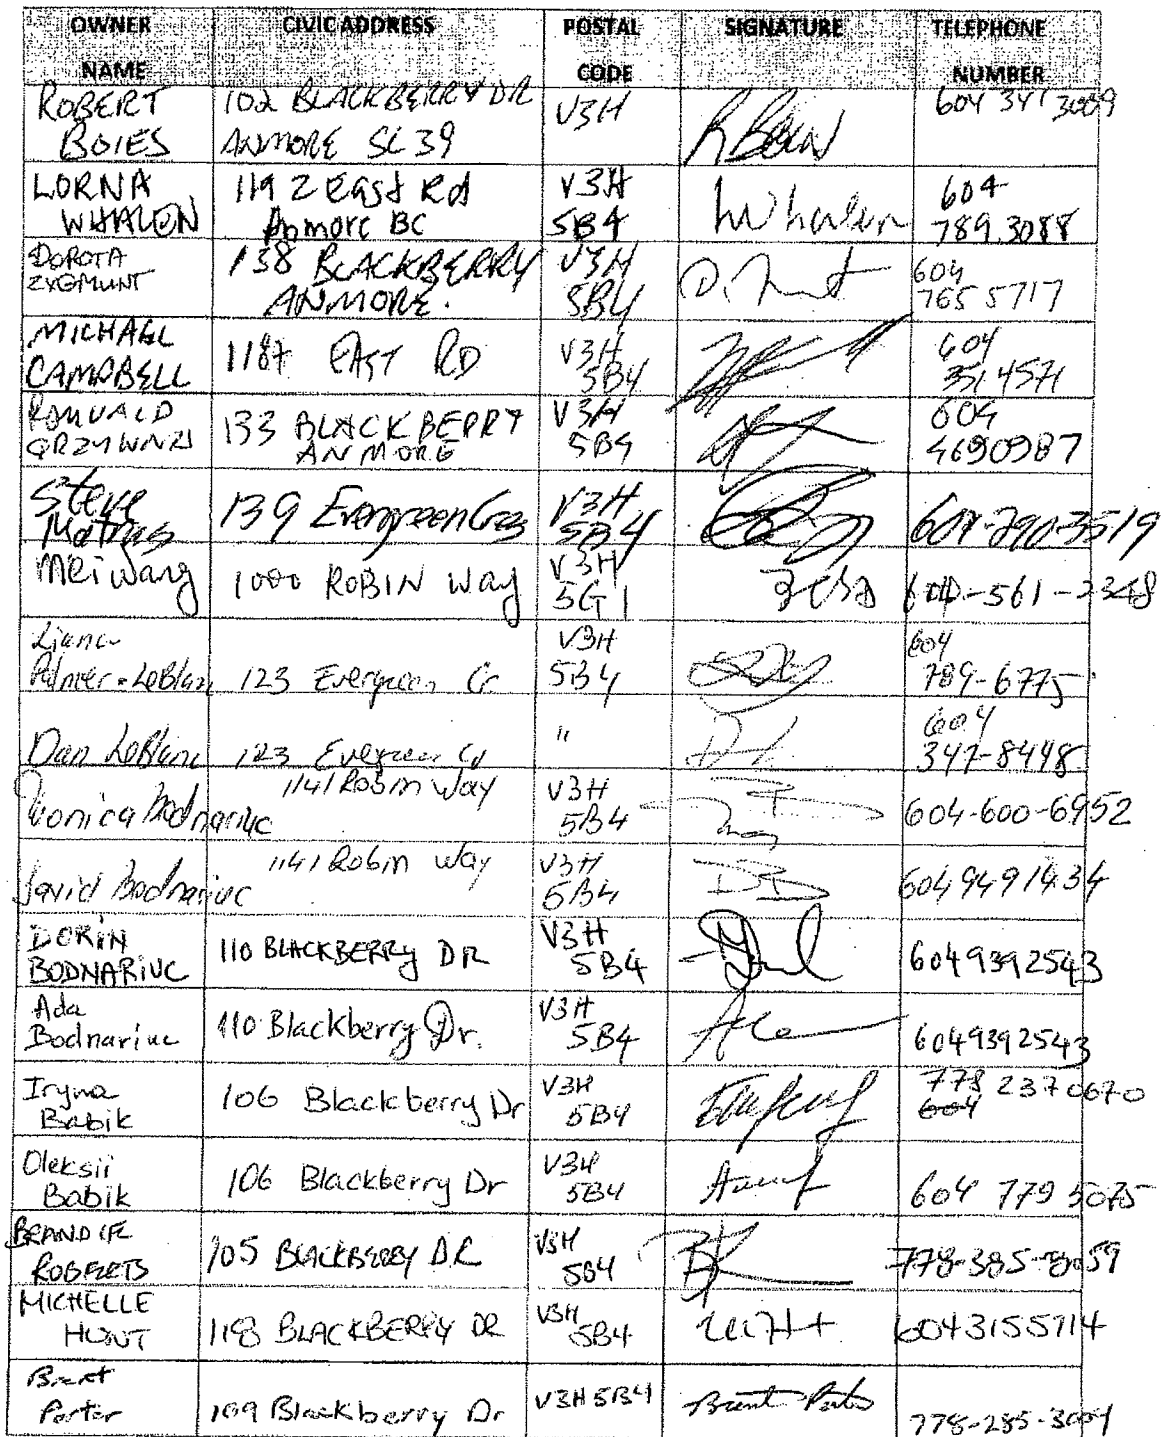 OWNER NAME CIVIC ADDRESS POSTAL CODE SIGNATURE TELEPHONE NUMBER
ROBERT BOIES 102 BLACKBERRY DR ANMORE V3H 604 341 3009
LORNA WHALEN 1192 East Rd Anmore BC V3H 5B4 LWhalen 604 789.3088
DOROTA ZYGMUNT 138 BLACKBERRY ANMORE. V3H 5B4 604 765 5717
MICHAEL CAMPBELL 1187 EAST RD V3H 5B4 604
ROMUALD 133 BLACKBERRY ANMORE V3H 5B4 604 4690987
Steve 139 Evergreen Cres V3H 5B4
Mei Wang 1000 ROBIN Way V3H 5G1 604-561-2348
Palmer-LeBlanc 123 Evergreen Cr V3H 5B4 604 789-6775
Dan LeBlanc 123 Evergreen Cr " 604 347-8448
Bodnariuc 1141 Robin Way V3H 5B4 604-600-6952
David Bodnariuc 1141 Robin Way V3H 5B4 604 949 1434
DORIN BODNARIUC 110 BLACKBERRY DR V3H 5B4 6049392543
Ada Bodnariuc 110 Blackberry Dr. V3H 5B4 6049392543
Iryna Babik 106 Blackberry Dr V3H 5B4 778 237 0670 604
Oleksii Babik 106 Blackberry Dr V3H 5B4 604 779 5075
ROBERTS 105 BLACKBERRY DR V3H 5B4
MICHELLE HUNT 118 BLACKBERRY DR V3H 5B4 6043155714
Brent Porter 109 Blackberry Dr V3H 5B4 Brent Porter